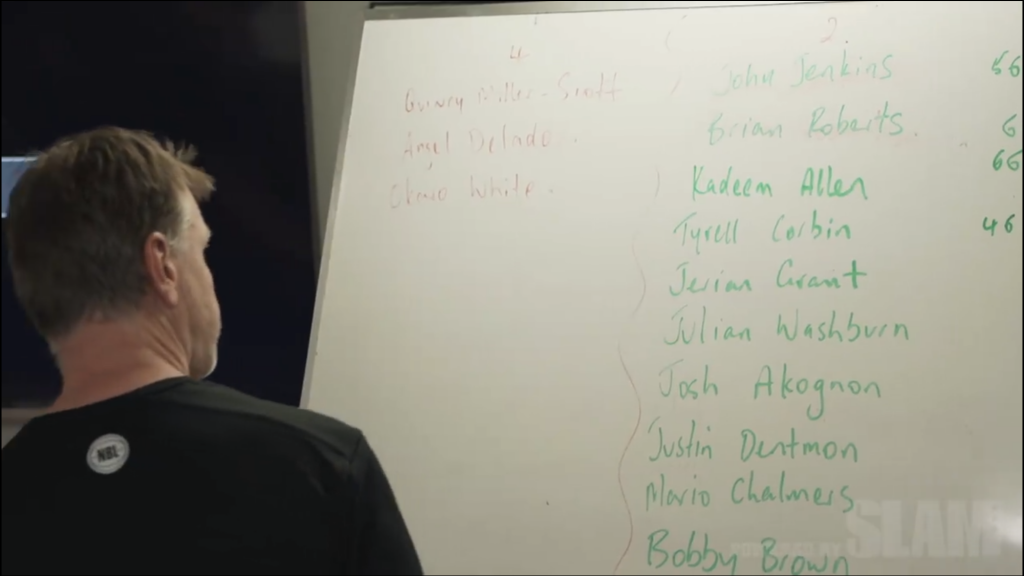 4
Quincy Miller-Scott
Angel Delado.
Okaro White.
2.
John Jenkins 56
Brian Roberts. 6
Kadeem Allen 66
Tyrell Corbin 46
Jerian Grant
Julian Washburn
Josh Akognon
Justin Dentmon
Mario Chalmers
Bobby Brown
NBL
SLAM